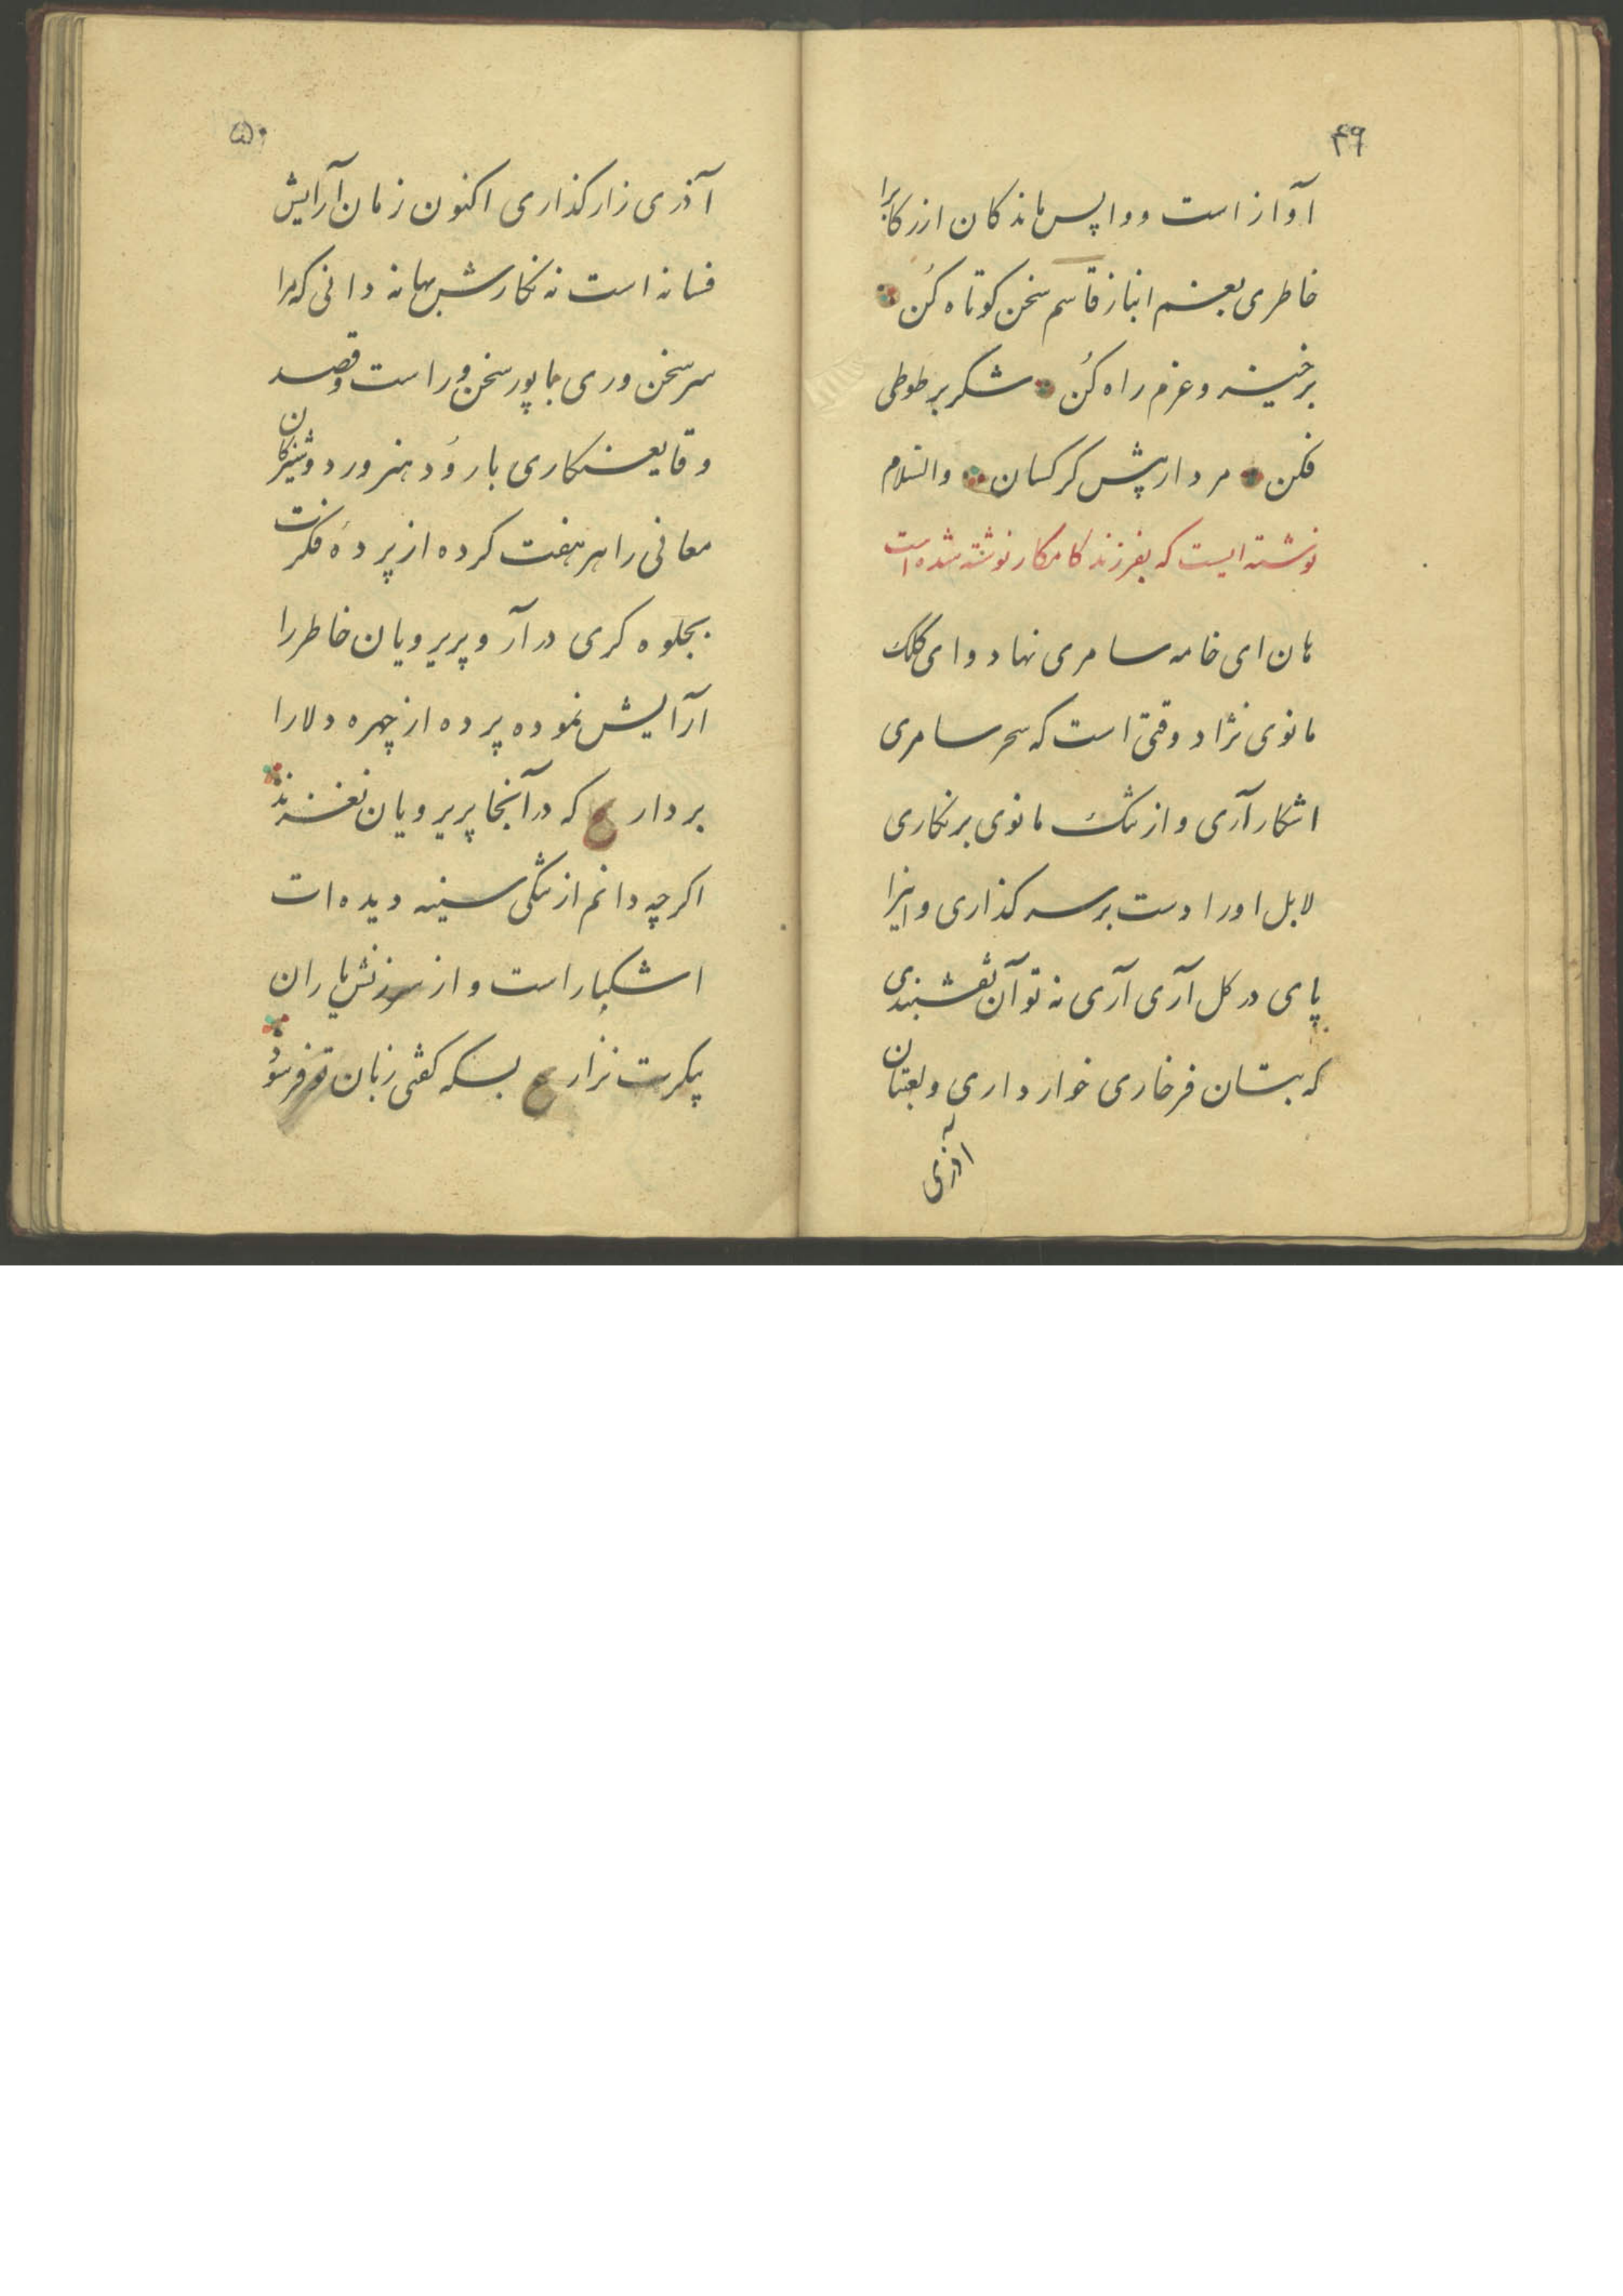 ۴۹
آواز است و واپس ماندکان از رکابرا
خاطری بغم انباز قاسم سخن کوتاه کن
برخیز و عزم راه کن شکر بر طوطی
فکن مردار پیش کرکسان والسلام
نوشته ایست که بفرزند کامکار نوشته شده است
هان ای خامه سامری نهاد و ای کلک
مانوی نژاد وقتی است که سحر سامری
اشکار آری و ارتنک مانوی برنکاری
لابل او را دست بر سر کذاری و اینرا
پای در کل آری آری نه تو آن نقشبندی
که بتان فرخاری خوار داری و لعبتان
آذری
۵۰
آذری زار کذاری اکنون زمان آرایش
فسانه است نه نکارش بهانه دانی که مرا
سر سخن وری با پور سخن ور است و قصد
وقایع نکاری با رود هنرور دوشیزکان
معانی را هر هفت کرده از پرده فکرت
بجلوه کری در آر و پریرویان خاطر را
آرایش نموده پرده از چهره دلارا
بردار ع که در آنجا پریرویان نغزند
اکرچه دانم از تنکی سینه دیده ات
اشکبار است و از سرزنش یاران
پیکرت نزار ع بسکه کفتی زبان تو فرسود